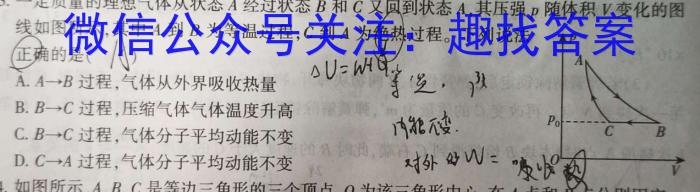 一定质量的理想气体从状态 A 经过状态 B 和 C 又回到状态 A,其压强 p 随体积 V 变化的图
线如图 A 到 B 为等温过程,C 到 A 为绝热过程。下列说法
正确的是
微信公众号关注:趣找答案
A. A→B 过程,气体从外界吸收热量
B. B→C 过程,压缩气体气体温度升高
C. B→C 过程,气体分子平均动能不变
D. C→A 过程,气体分子平均动能不变
ΔU=W+Q
内能不变
对外
A
p₀
C
B
O
V
如图所示,A、B、C 是等边三角形的三个顶点,O 为该三角形中心